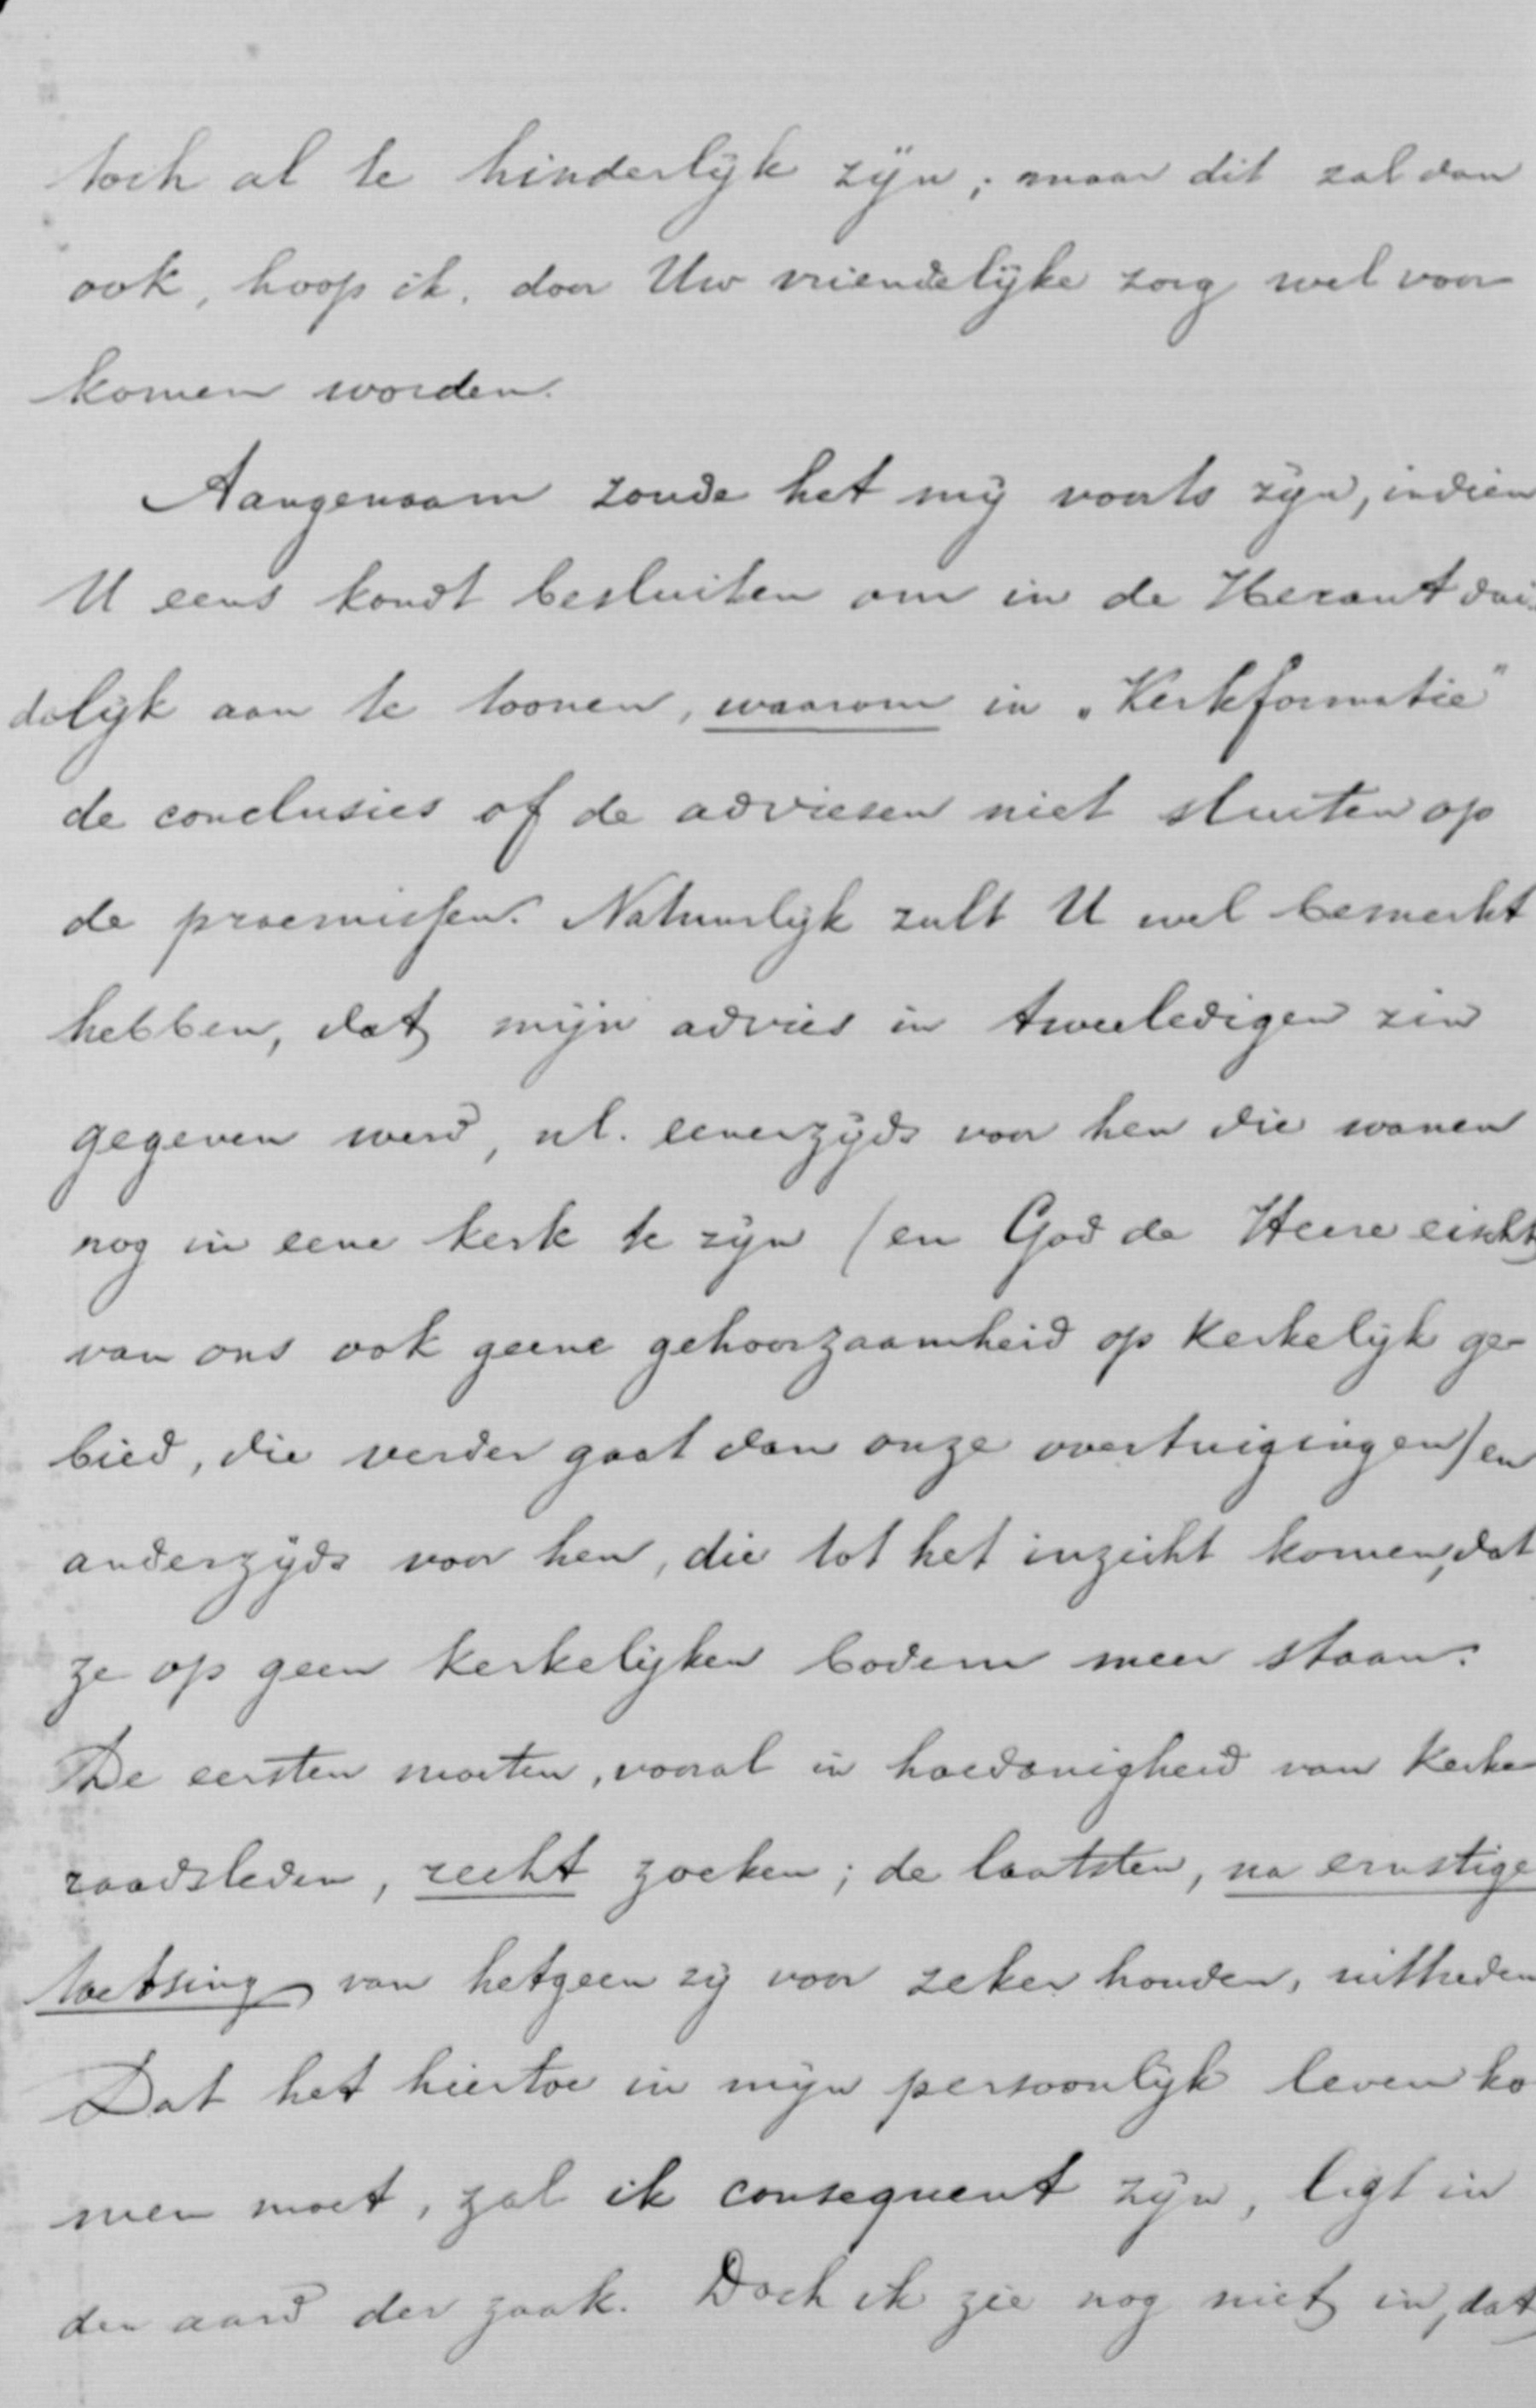 toch al te hinderlijk zijn; maar dit zal dan
ook, hoop ik, door Uw vriendelijke zorg wel voor
komen worden.
Aangenaam zoude het mij voorts zijn, indien
U eens kondt besluiten om in de Heraut dui
delijk aan te toonen, waarom in "Kerkformatie"
de conclusies of de adviesen niet sluiten op
de praemissen. Natuurlijk zult U wel bemerkt
hebben, dat mijn advies in tweeledigen zin
gegeven werd, nl. eenerzijds voor hen die wanen
nog in eene kerk te zijn (en God de Heere eischt
van ons ook geene gehoorzaamheid op kerkelijk ge-
bied, die verder gaat dan onze overtuigingen) en
anderzijds voor hen, die tot het inzicht komen, dat
ze op geen kerkelijken bodem meer staan.
De eersten moeten, vooral in hoedanigheid van Kerke
raadsleden, recht zoeken; de laatsten, na ernstige
toetsing van hetgeen zij voor zeker houden, uittreden
Dat het hiertoe in mijn persoonlijk leven ko
men moet, zal ik consequent zijn, ligt in
den aard der zaak. Doch ik zie nog niet in, dat